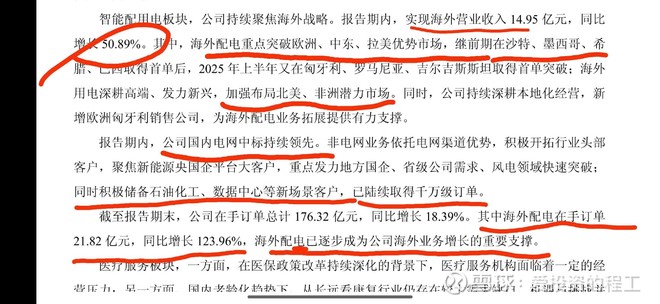 智能配用电板块，公司持续聚焦海外战略。报告期内，实现海外营业收入 14.95 亿元，同比
增长 50.89%。其中，海外配电重点突破欧洲、中东、拉美优势市场，继前期在沙特、墨西哥、希
腊、巴西取得首单后，2025 年上半年又在匈牙利、罗马尼亚、吉尔吉斯斯坦取得首单突破；海外
用电深耕高端、发力新兴，加强布局北美、非洲潜力市场。同时，公司持续深耕本地化经营，新
增欧洲匈牙利销售公司，为海外配电业务拓展提供有力支撑。
报告期内，公司国内电网中标持续领先。非电网业务依托电网渠道优势，积极开拓行业头部
客户，聚焦新能源央国企平台大客户，重点发力地方国企、省级公司需求、风电领域快速突破；
同时积极储备石油化工、数据中心等新场景客户，已陆续取得千万级订单。
截至报告期末，公司在手订单总计 176.32 亿元，同比增长 18.39%。其中海外配电在手订单
21.82 亿元，同比增长 123.96%，海外配电已逐步成为公司海外业务增长的重要支撑。
医疗服务板块，一方面，在医保政策改革持续深化的背景下，医疗服务机构面临着一定的经